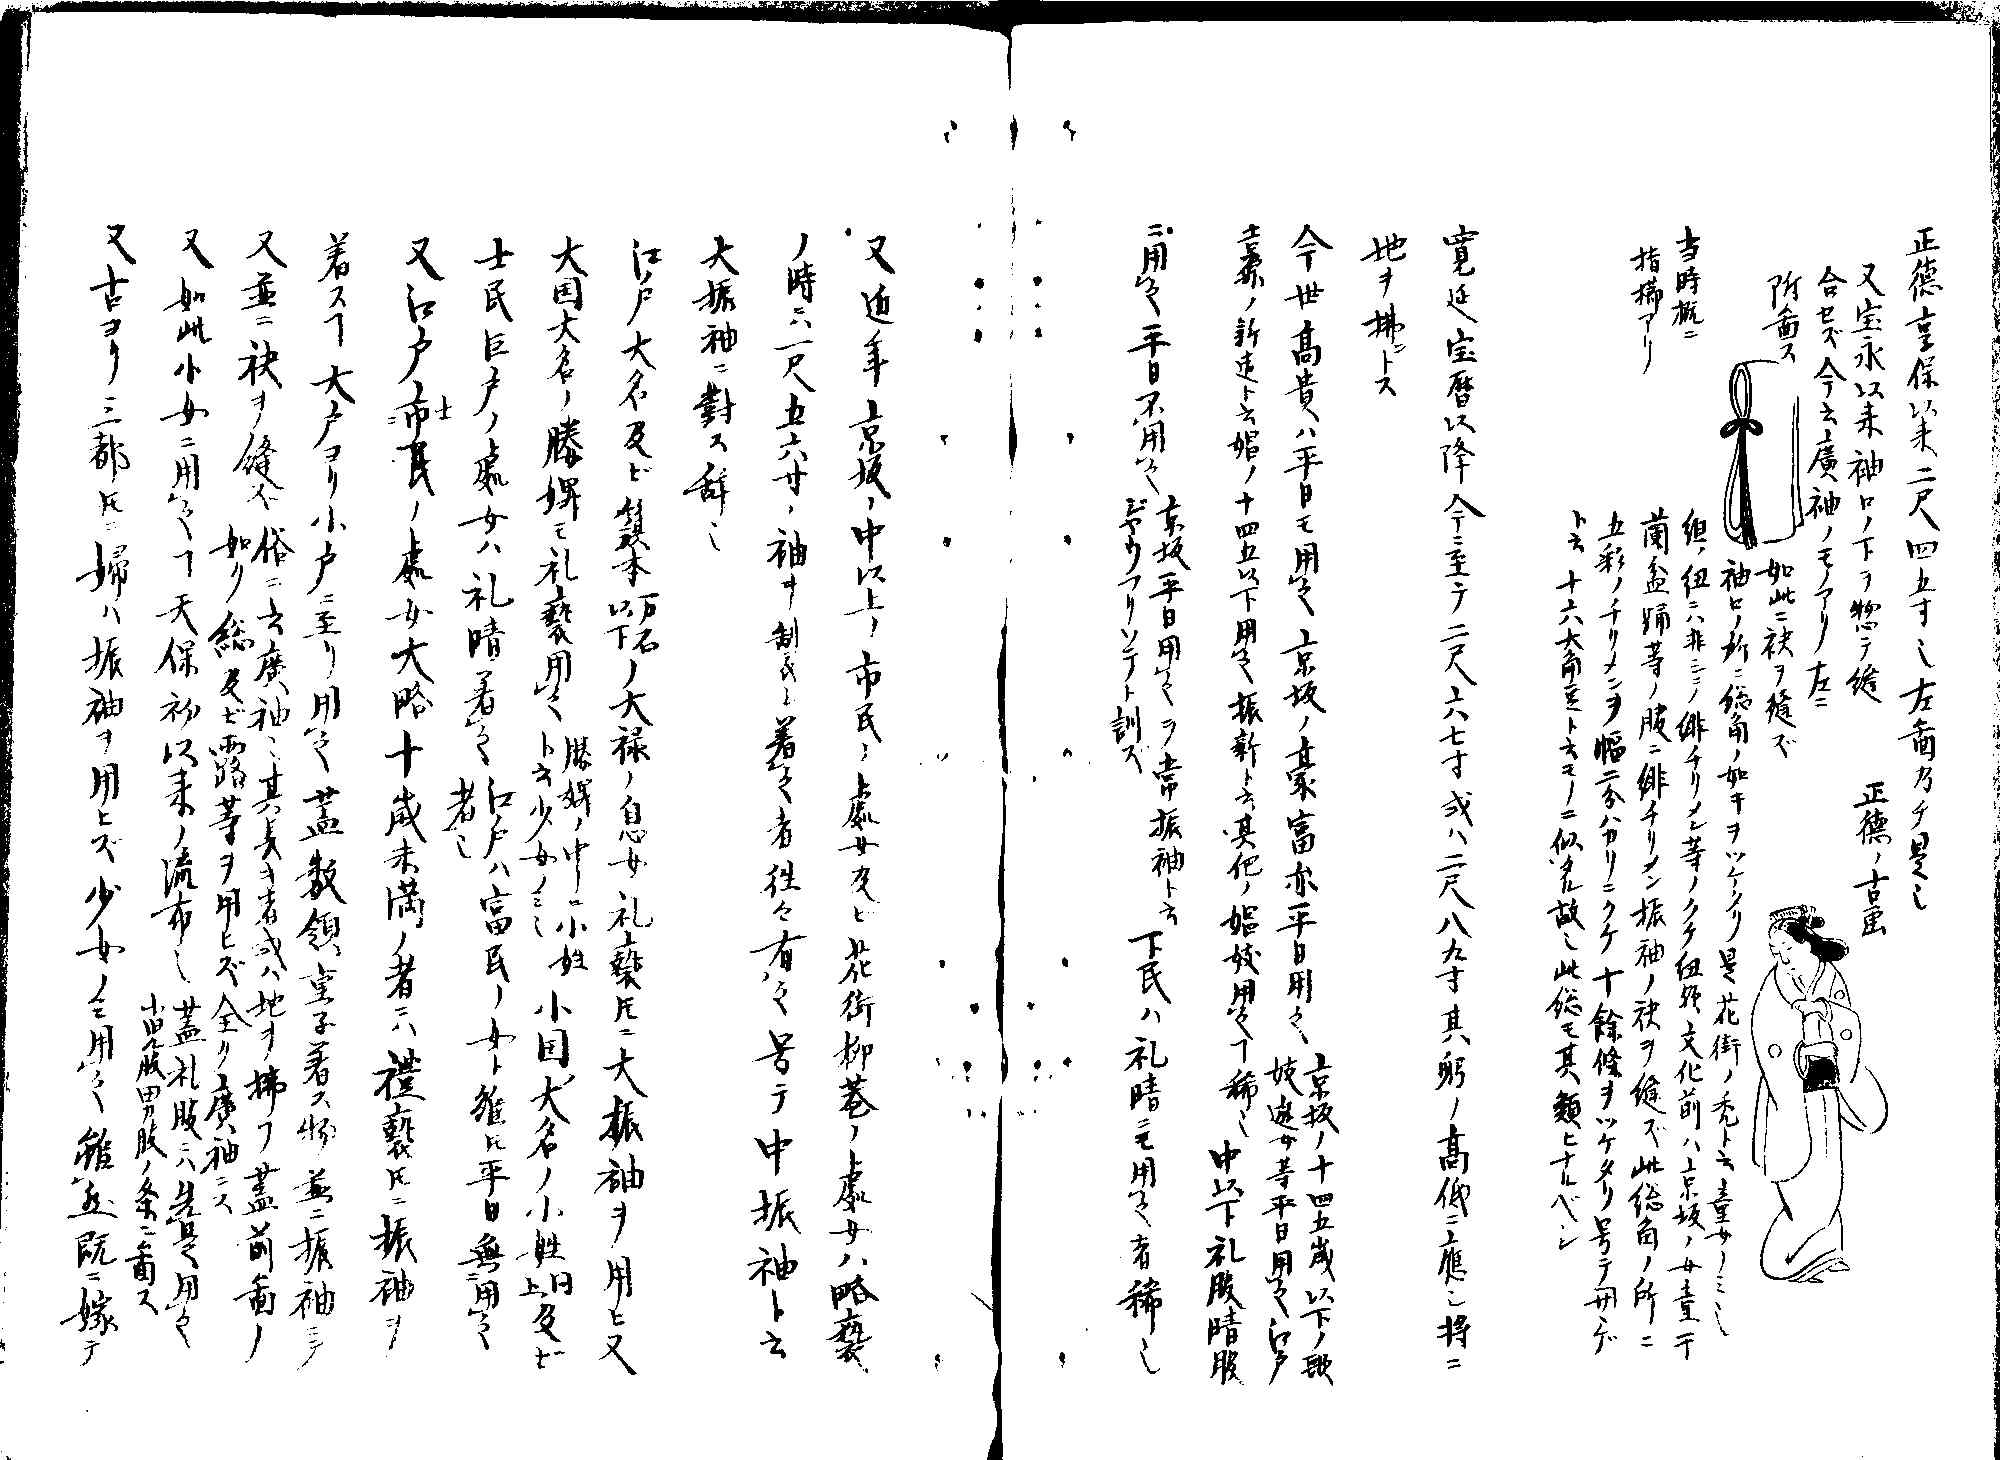 正徳享保以来二尺四五寸也左畵乃チ是也
又宝永以来袖口ノ下ヲ惣テ縫
合セズ今云廣袖ノモノアリ左ニ
所畵ス
正徳ノ古画
当時概ニ
指櫛アリ
如此ニ袂ヲ縫ズ
袖ヒノ所ニ総角ノ如キヲツケタリ是花街ノ禿ト云童女ノミ也
組ノ紐ニハ非ニノ緋チリメン等ノクケ紐歟文化前ハ京坂ノ女童干
蘭盆踊等ノ服ニ緋チリメン振袖ノ袂ヲ縫ズ此総角ノ所ニ
五彩ノチリメンヲ幅二分バカリニクケ十餘條ヲツケタリ号テ
ト云十六大角豆ト云モノニ似タル故也此総モ其類ヒナルベシ
寛延宝暦以降今ニ至テ二尺六七寸或ハ二尺八九寸其躬ノ高低ニ應シ将ニ
地ヲ拂ントス
今世高貴ハ平日モ用之京坂ノ豪富亦平日用之
京坂ノ十四五歳以下ノ歌
妓遊女等平日用之江戸
吉原ノ新造ト云娼ノ十四五以下用之振新ト云其他ノ娼妓用之稀也中以下礼服晴服
ニ用之平日不用之
京坂平日用之ヲ常振袖ト云
ジヤウフリソデト訓ズ
下民ハ礼晴ニモ用之者稀也
又近年京坂ノ中以上ノ市民ノ處女及ビ花街柳巷ノ處女ハ略褻
ノ時ニハ一尺五六寸ノ袖ヲ制シ着之者往々有之号テ中振袖ト云
大振袖ニ對ス辞也
江戸大名及ビ籏本万石以下ノ大禄ノ息女礼褻トモニ大振袖ヲ用ヒ又
大国大名ノ媵婢モ礼褻用之
媵婢ノ中ニ小姓
ト云少女ノミ也
小国大名ノ小姓同上及ビ
士民巨戸ノ處女ハ礼晴着之
江戸ハ富民ノ女ト雖モ平日無用之
者也
又江戸市民ノ處女大略十歳未満ノ者ニハ禮褻トモニ振袖ヲ
着ス大戸ヨリ小戸ニ至リ用之蓋数領童子着ス物並ニ振袖ニテ
又並ニ袂ヲ縫ズ俗ニ云廣袖也其長ヲ者或ハ地ヲノ拂フ蓋前畵ノ
如ク総及ビ露等ヲ用ヒズ全ク廣袖ニス
又如此小女ニ用之天保初以来ノ流布也
蓋礼服ニハ先是用之
小児服男服ノ条ニ畵ス
又古ヨリ三都トモニ婦ハ振袖ヲ用ヒズ少女ノミ用之雖然既ニ嫁テ